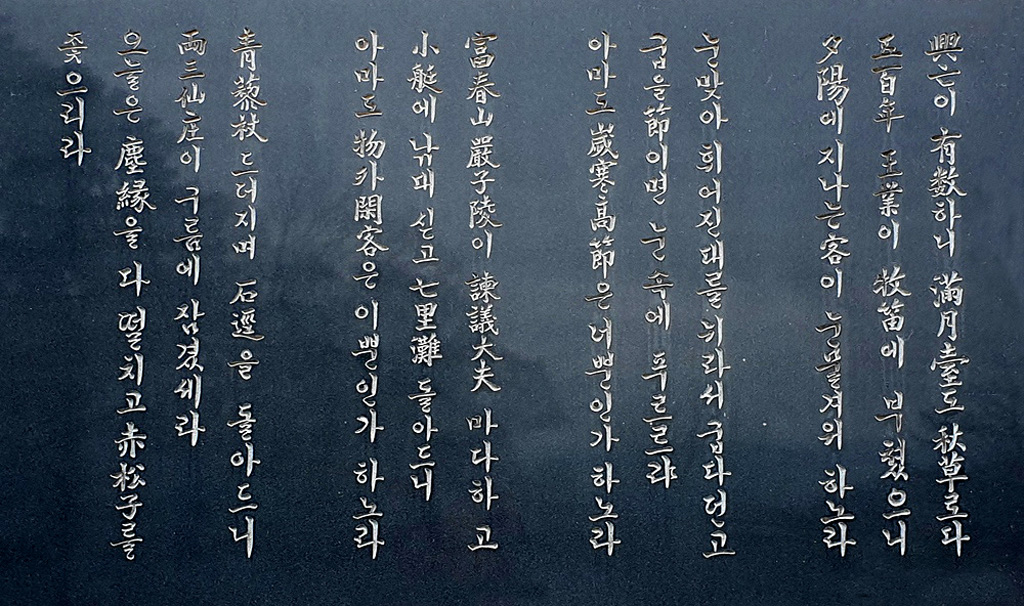 興亡이 有数하니 滿月臺도 秋草로다
五百年 王業이 牧笛에 부쳤으니
夕陽에 지나는 客이 눈물겨워 하노라
눈맞아 휘어진 대를 뉘라서 굽다던고
굽을 節이면 눈 속에 푸르르랴
아마도 歲寒高節은 너뿐인가 하노라
富春山 嚴子陵이 諫議大夫 마다하고
小艇에 낚대 싣고 七里灘 돌아드니
아마도 物外閑客은 이뿐인가 하노라
靑藜杖 드더지며 石逕을 돌아드니
両三仙庄이 구름에 잠겼세라
오늘은 塵縁을 다 떨치고 赤松子를
좇으리라